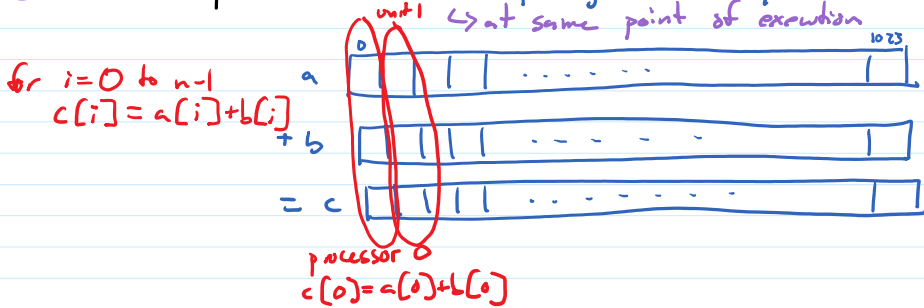 unit 1
↳ at same point of execution
0 1023
for i=0 to n-1
a . . . . . .
c[i] = a[i]+b[i]
+ b - - - - -
= c . - - - - - -
processor 0
c[0]=a[0]+b[0]